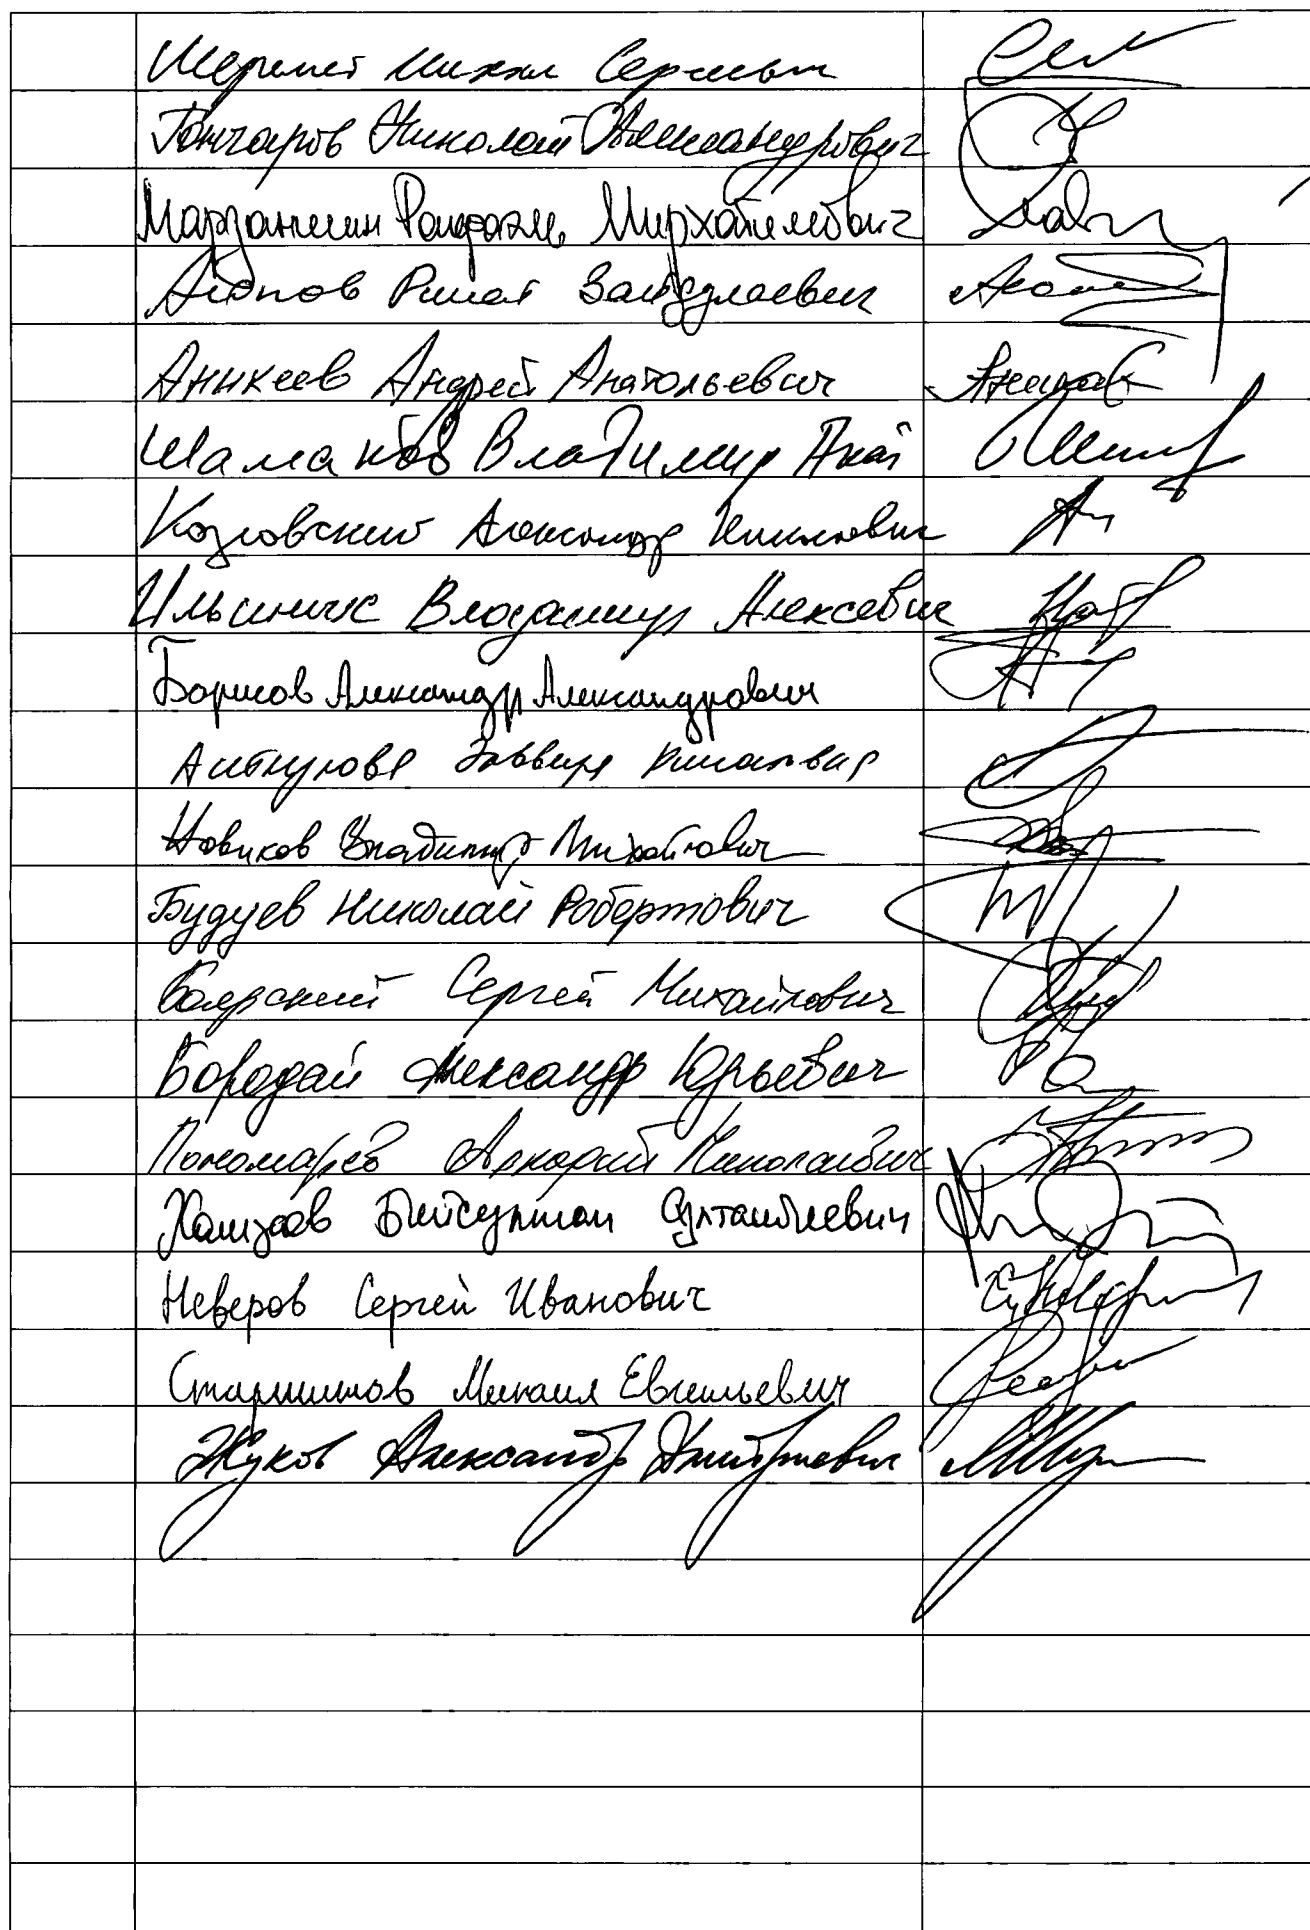 Шеремет Михаил Сергеевич
Гончаров Николай Александрович
Марданшин Рафаэль Мирхатимович
Аюпов Ринат Зайдулаевич
Аникеев Андрей Анатольевич
Шаманов Владимир Анат
Козловский Александр Николаевич
Ильиных Владимир Алексеевич
Борисов Александр Александрович
Аиткулова Эльвира Ринатовна
Новиков Владимир Михайлович
Будуев Николай Робертович
Боярский Сергей Михайлович
Бородай Александр Юрьевич
Пономарёв Аркадий Николаевич
Хамзаев Бийсултан Султанбиевич
Неверов Сергей Иванович
Старшинов Михаил Евгеньевич
Жуков Александр Дмитриевич